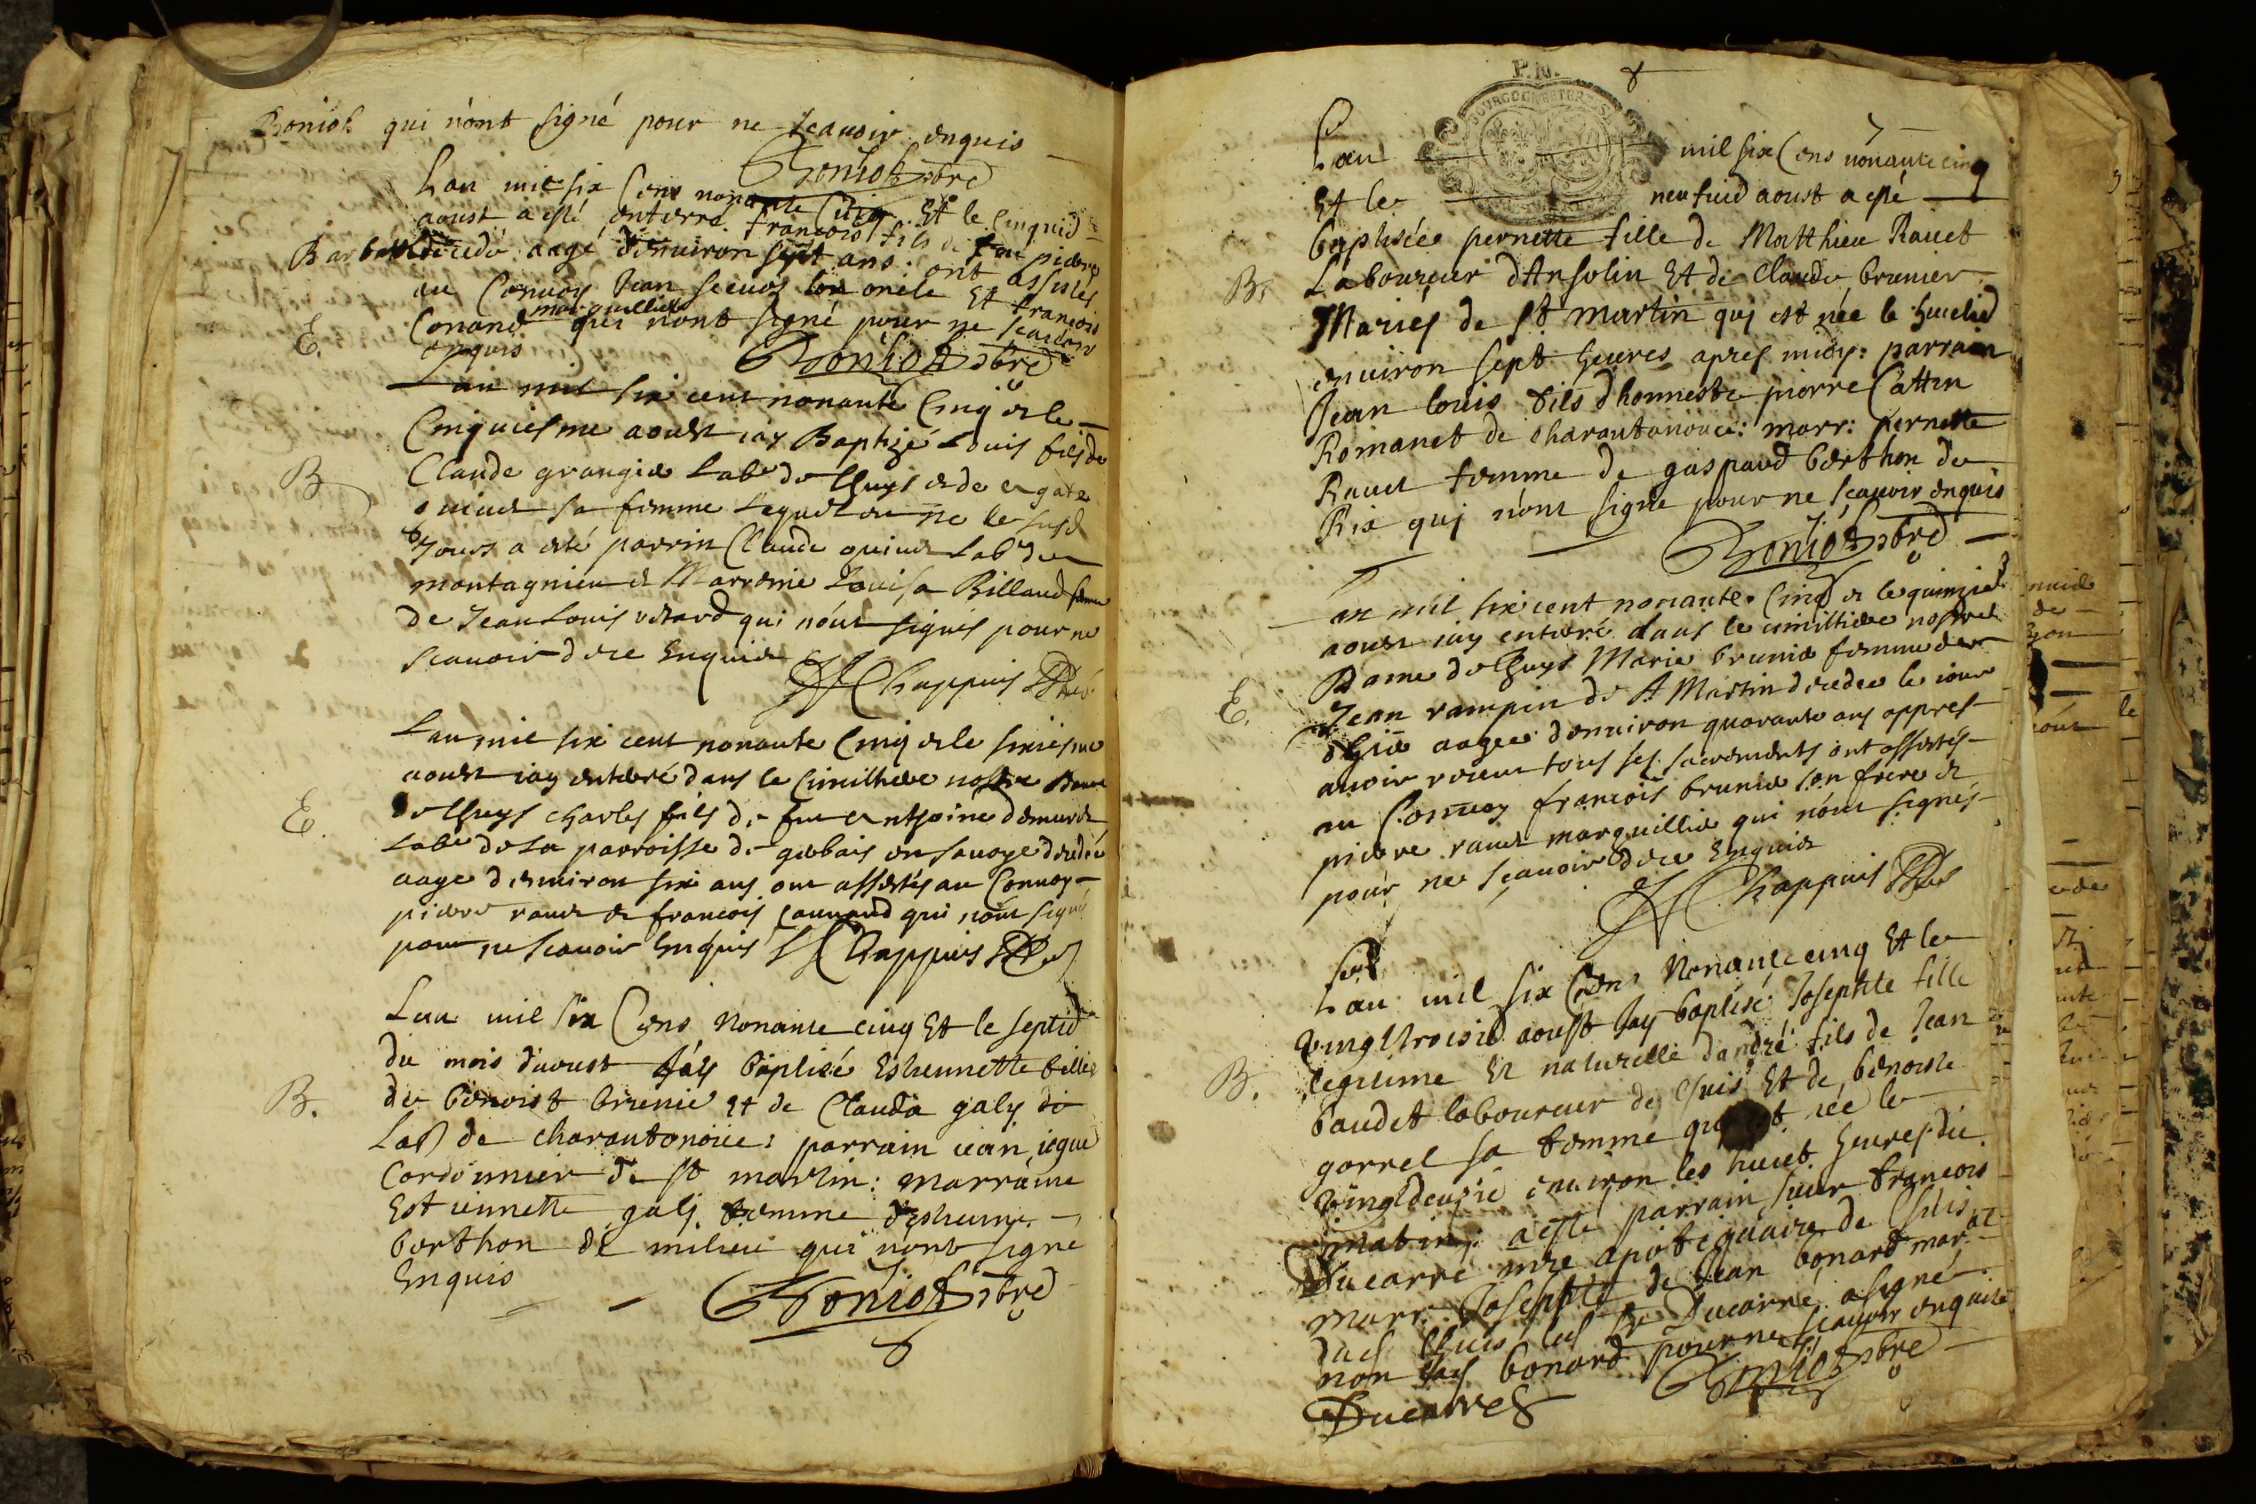 Boniot qui n'ont signé pour ne scavoir enquis
Boniot pbre
Lan mil six Cens nonante Cinq Et le Cinquie
aoust a esté enterré francois fils de feu pierre
Barbot decedé aagé denviron sept ans. ont assistés
au Convoy Jean son oncle Et francois
Conand marguillier qui nont signé pour ne scavoir
enquis Boniot pbre
E.
Lan mil six cent nonante Cinq et le
Cinquiesme aoust iay Baptizé Louis fils de
Claude grangier Labr de Lhuys et de
sa femme Lequel est ne le susd
B
Jour a esté parrin Claude Labr de
montagnieu et Marreine Louisa Billaud femme
de Jean Louis qui n'ont signés pour ne
scavoir de ce Enquis
Chappuis
Lan mil six cent nonante Cinq et le sixiesme
aoust iay enterré dans le Cimithiere nostre Dame
de Lhuys Charles fils de feu Anthoine
E.
Labr de La parroisse de gerbais en savoye decedé
aagé d'environ six ans ont assistés au Convoy
pierre ravet et francois Connand qui n'ont signé
pour ne scavoir Enquis Chappuis
Lan mil six Cens Nonante cinq Et le septie
du mois d'aoust Jay baptisée Estiennette fille
B.
de benoist brunier et de Clauda galy
Lab de charantonoüe: parrain iean
Cordonnier de st martin: marraine
Estiennette galy femme d'estienne
berthon de milieu qui n'ont signe
Enquis
Boniot pbre
P. R.
BOURGOGNE
Lan mil six Cens nonante cinq
Et le neufuie aoust a esté
baptisée pernette fille de Matthieu Ravet
B.
Laboureur dAnsolin Et de Claude brunier
Mariés de st martin qui est née le
environ sept heures apres midy: parrain
Jean Louis fils dhonneste pierre Cattin
Romanet de charantonoüe: marr: pernette
Ravet femme de gaspard berthon de
Rix qui n'ont signé pour ne scavoir enquis
Boniot pbre
Lan mil six cent nonante Cinq et le quinzie
aoust iay enterré dans le cimittiere nostre
Dame de Lhuys Marie brunier femme de
E.
Jean rampin de st Martin decedee le iour
d'hier aagee d'environ quarante ans appres
avoir receu tous ses sacrements ont assistés
au Convoy francois brunier son frere et
pierre ravet marguillier qui n'ont signés
pour ne scavoir de ce Enquis
Chappuis
Lan mil six Cens Nonante cinq Et le
vingttroisie aoust Jay baptisé Josephte fille
B.
legitime Et naturelle d'andré fils de Jean
baudet laboureur de Lhuis Et de benoiste
gorrel sa femme née le
vingtdeusie environ les huict heures du
matin: a esté parrain sieur francois
Ducarré mre apotiquaire de Lhuis
marr Josephte de Jean bonard
dud Lhuis led sr Ducarré a signé
non lad bonard pour ne scavoir enquise
Boniot pbre
Ducarre